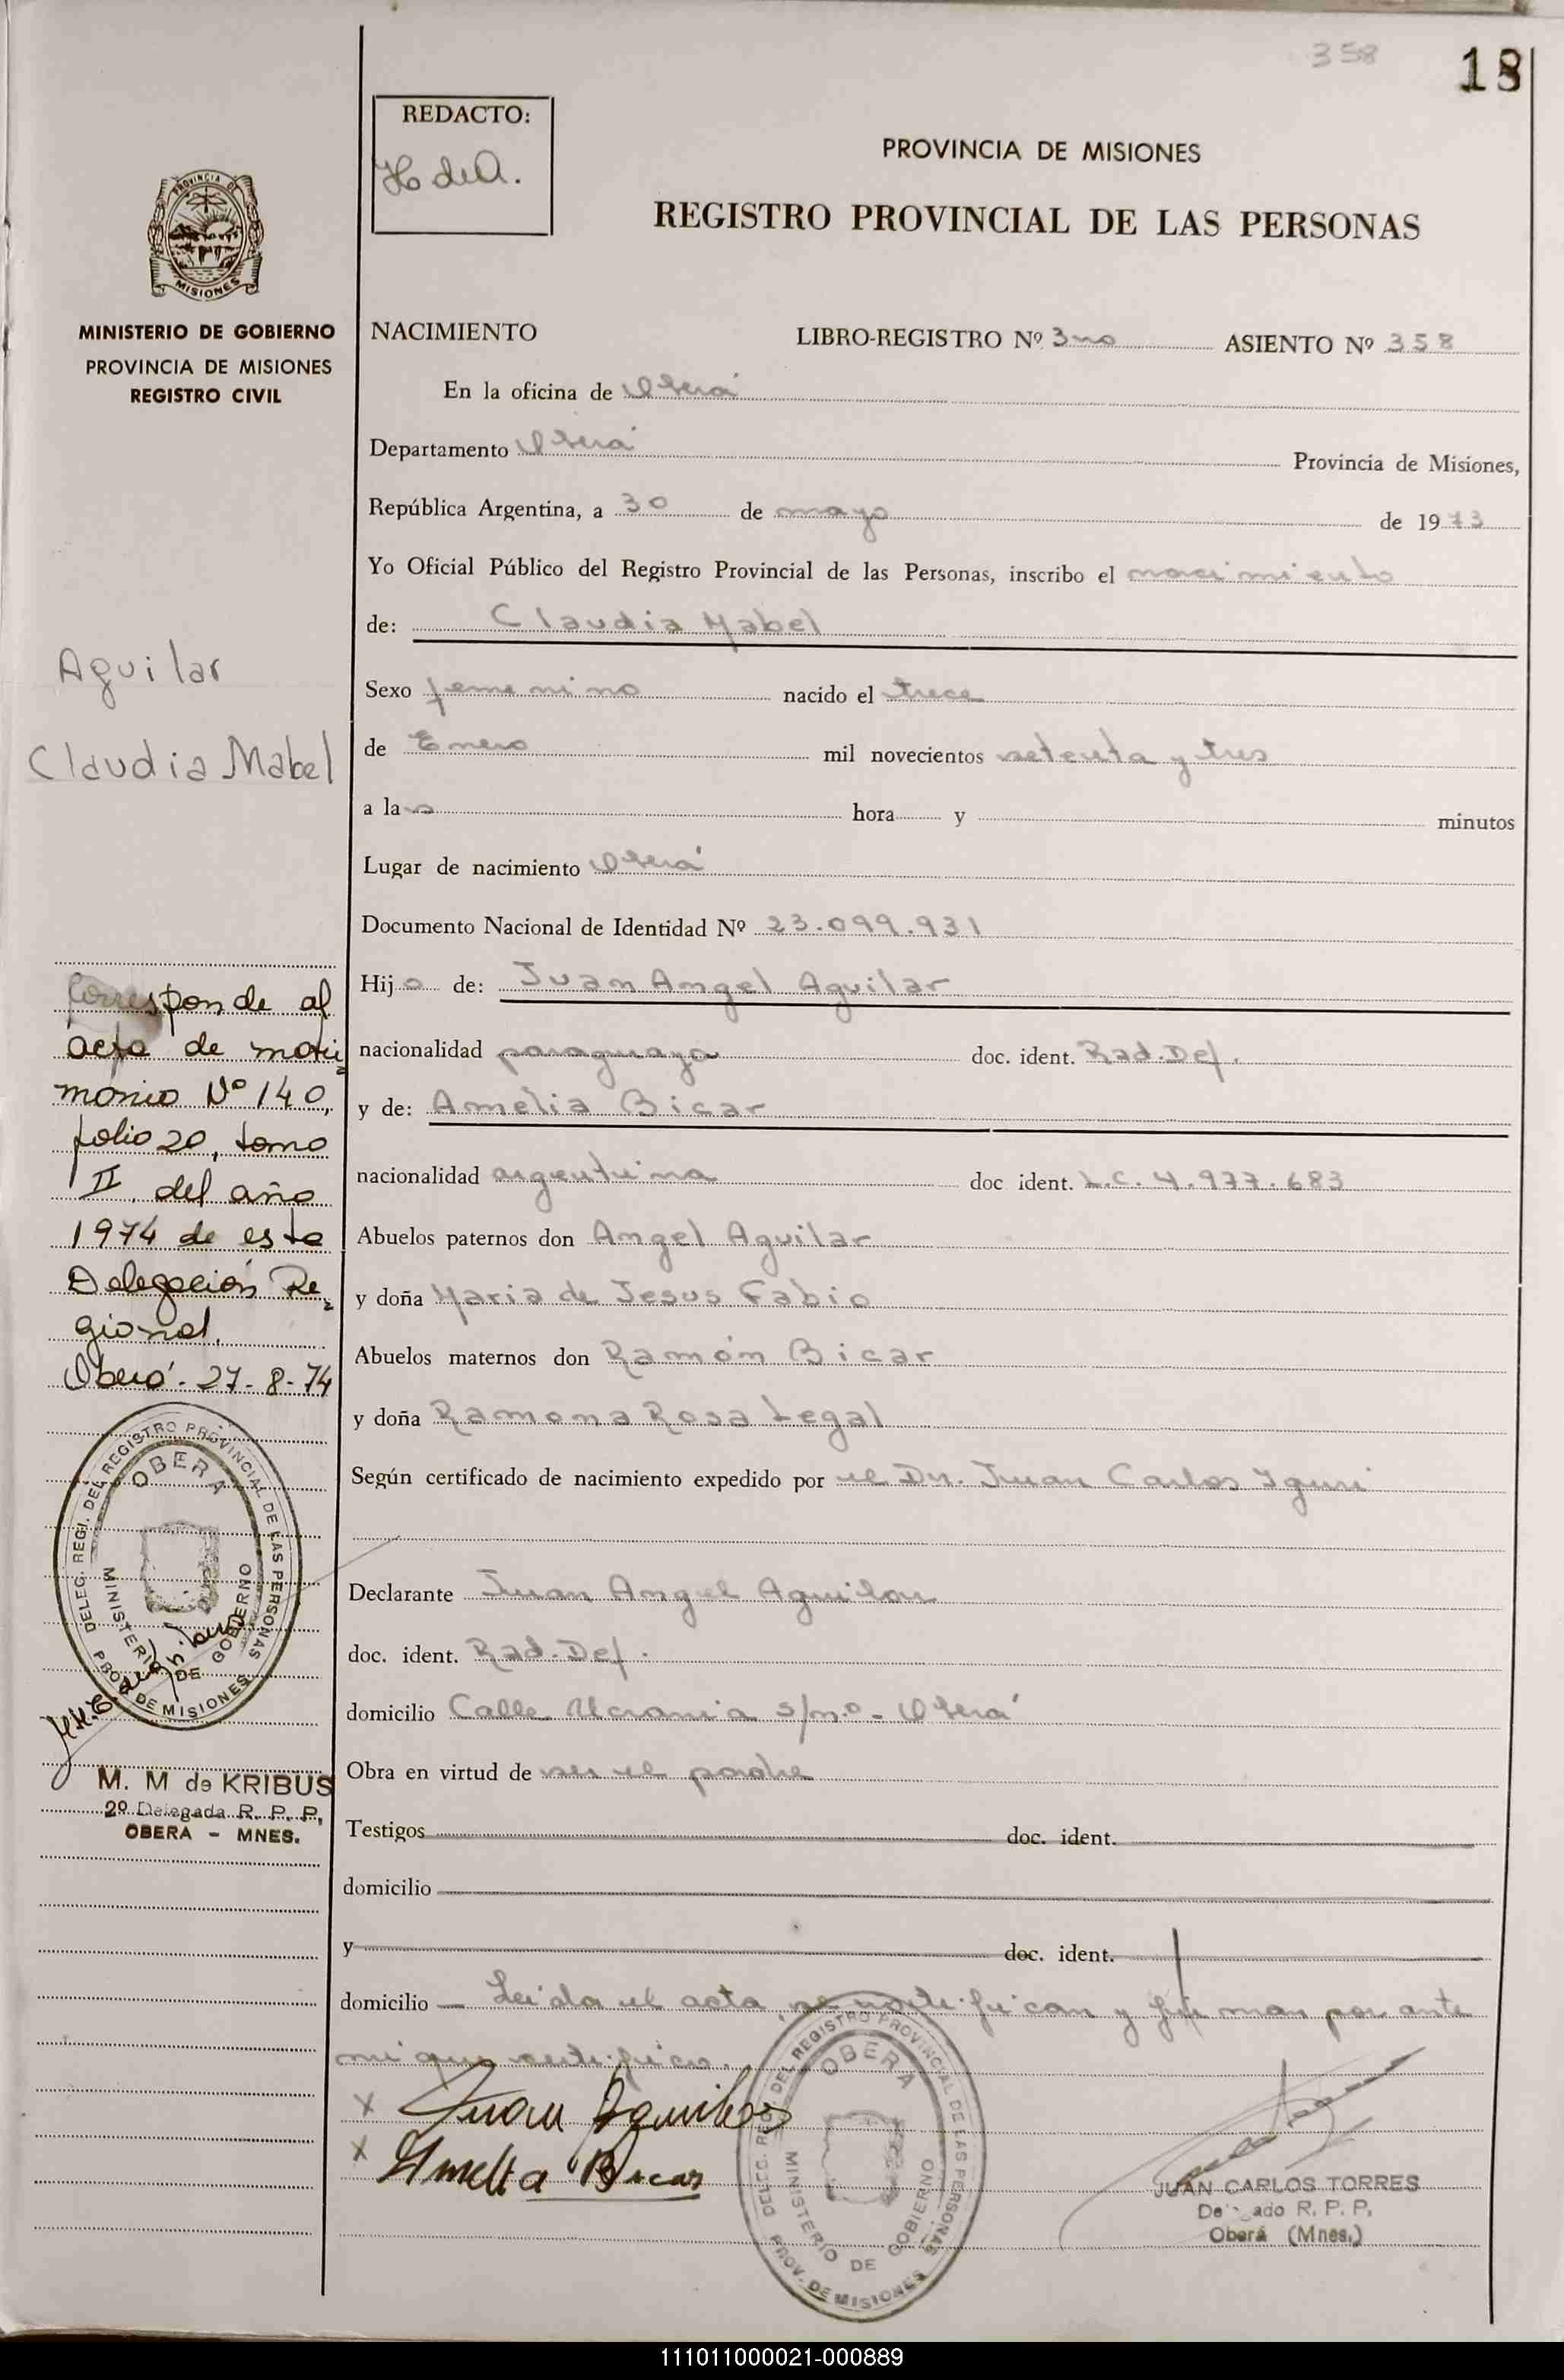 358
18
REDACTO:
H de A.
PROVINCIA DE MISIONES
REGISTRO PROVINCIAL DE LAS PERSONAS
PROVINCIA DE
MISIONES
MINISTERIO DE GOBIERNO
PROVINCIA DE MISIONES
REGISTRO CIVIL
NACIMIENTO LIBRO-REGISTRO Nº 3no ASIENTO Nº 358
En la oficina de Oberá
Departamento Oberá Provincia de Misiones,
República Argentina, a 30 de mayo de 1973
Yo Oficial Público del Registro Provincial de las Personas, inscribo el nacimiento
de: Claudia Mabel
Sexo femenino nacido el trece
de Enero mil novecientos setenta y tres
a la hora y minutos
Lugar de nacimiento Oberá
Documento Nacional de Identidad Nº 23.099.931
Hija de: Juan Angel Aguilar
nacionalidad paraguaya doc. ident. Rad. Def.
y de: Amelia Bicar
nacionalidad argentina doc ident. L.C. 4.977.683
Abuelos paternos don Angel Aguilar
y doña Maria de Jesus Fabio
Abuelos maternos don Ramón Bicar
y doña Ramona Rosa Legal
Según certificado de nacimiento expedido por el Dr. Juan Carlos
Declarante Juan Angel Aguilar
doc. ident. Rad. Def.
domicilio Calle Ucrania s/n.º - Oberá
Obra en virtud de ser el padre
Testigos doc. ident.
domicilio
y doc. ident.
domicilio Leida el acta, se notifican y firman por ante
mi que certifico.
x Juan Aguilar
x Amelia Bicar
DELEG. REGI. DEL REGISTRO PROVINCIAL DE LAS PERSONAS
OBERA
MINISTERIO DE GOBIERNO
PROV. DE MISIONES
JUAN CARLOS TORRES
De ado R. P. P.
Oberá (Mnes.)
Aguilar
Claudia Mabel
Corresponde al
acta de matri=
monio Nº 140,
folio 20, tomo
II del año
1974 de esta
Delegación Re=
gional.
Oberá - 27-8-74
DELEG. REGI. DEL REGISTRO PROVINCIAL DE LAS PERSONAS
OBERA
MINISTERIO DE GOBIERNO
PROV. DE MISIONES
M. M de KRIBUS
2º Delegada R. P. P.
OBERA - MNES.
111011000021-000889